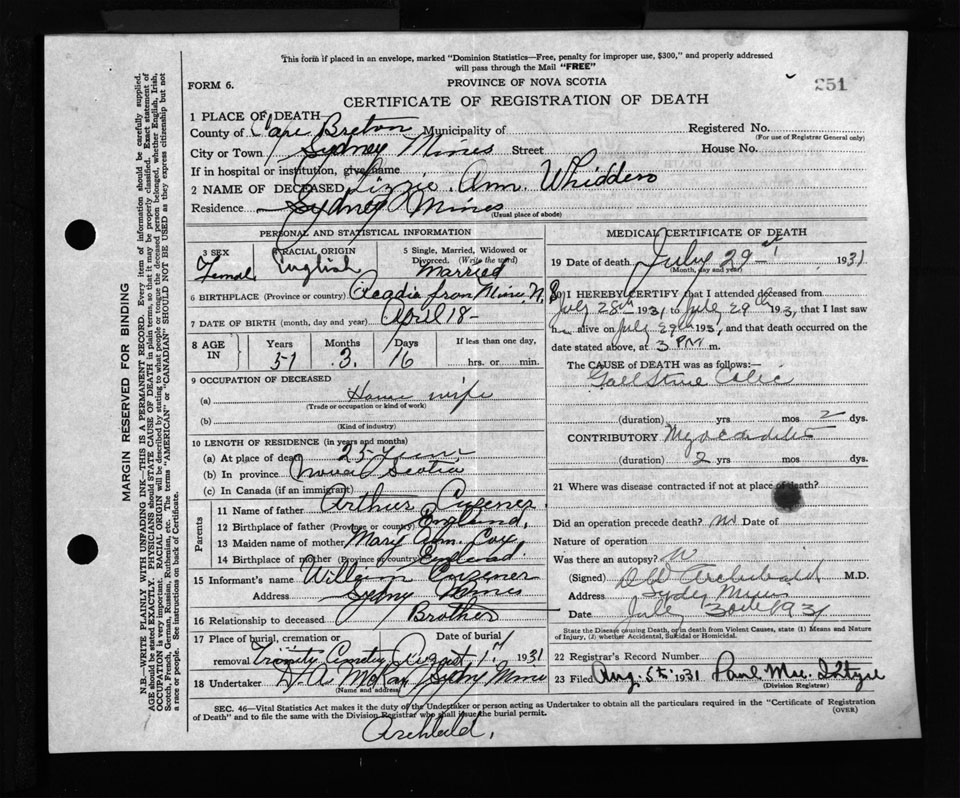 This form if placed in an envelope, marked "Dominion Statistics—Free, penalty for improper use, $300," and properly addressed
will pass through the Mail "FREE"
FORM 6.
PROVINCE OF NOVA SCOTIA
251
CERTIFICATE OF REGISTRATION OF DEATH
1 PLACE OF DEATH
County of Cape Breton Municipality of
Registered No.
(For use of Registrar General only)
City or Town Sydney Mines Street House No.
If in hospital or institution, give name
2 NAME OF DECEASED Lizzie Ann Whidden
Residence Sydney Mines
(Usual place of abode)
PERSONAL AND STATISTICAL INFORMATION
3 SEX Female
4 RACIAL ORIGIN English
5 Single, Married, Widowed or Divorced. (Write the word) Married
6 BIRTHPLACE (Province or country) Acadia Mines N.S
7 DATE OF BIRTH (month, day and year) April 18
8 AGE IN Years 51 Months 3 Days 16
If less than one day,
hrs. or min.
9 OCCUPATION OF DECEASED
(a) House wife
(Trade or occupation or kind of work)
(b)
(Kind of industry)
10 LENGTH OF RESIDENCE (in years and months)
(a) At place of death 25
(b) In province Nova Scotia
(c) In Canada (if an immigrant)
Parents
11 Name of father Arthur
12 Birthplace of father (Province or country) England.
13 Maiden name of mother Mary Ann Cox
14 Birthplace of mother (Province or country) England
15 Informant's name William
Address Sydney Mines
16 Relationship to deceased Brother
17 Place of burial, cremation or removal Trinity Cemetery
Date of burial August 1st 1931
18 Undertaker D. A. McKay Sydney Mines
(Name and address)
MEDICAL CERTIFICATE OF DEATH
19 Date of death July 29 1931
(Month, day and year)
20 I HEREBY CERTIFY that I attended deceased from
July 28th 1931 to July 29th 1931, that I last saw
h alive on July 29th 1931, and that death occurred on the
date stated above, at 3 PM m.
The CAUSE OF DEATH was as follows:—
Gall Stone Colic
(duration) yrs mos 2 dys.
CONTRIBUTORY Myocarditis
(duration) 2 yrs mos dys.
21 Where was disease contracted if not at place of death?
Did an operation precede death? No Date of
Nature of operation
Was there an autopsy?
(Signed) Archibald M.D.
Address Sydney Mines
Date July 30th 1931
State the Disease causing Death, or in death from Violent Causes, state (1) Means and Nature
of Injury, (2) whether Accidental, Suicidal or Homicidal.
22 Registrar's Record Number
23 Filed Aug. 5th 1931 Paul Mac
(Division Registrar)
SEC. 46—Vital Statistics Act makes it the duty of the Undertaker or person acting as Undertaker to obtain all the particulars required in the "Certificate of Registration
of Death" and to file the same with the Division Registrar who shall issue the burial permit.
(OVER)
Archibald.
MARGIN RESERVED FOR BINDING
N.B.—WRITE PLAINLY WITH UNFADING INK—THIS IS A PERMANENT RECORD. Every item of information should be carefully supplied.
AGE should be stated EXACTLY. PHYSICIANS should STATE CAUSE OF DEATH in plain terms, so that it may be properly classified. Exact statement of
OCCUPATION is very important. RACIAL ORIGIN will be described by stating to what people or tongue the deceased person belonged, whether English, Irish,
Scotch, French, German, Russian, Ruthenian, etc. The terms "AMERICAN" or "CANADIAN" SHOULD NOT BE USED as they express citizenship but not
a race or people. See instructions on back of Certificate.